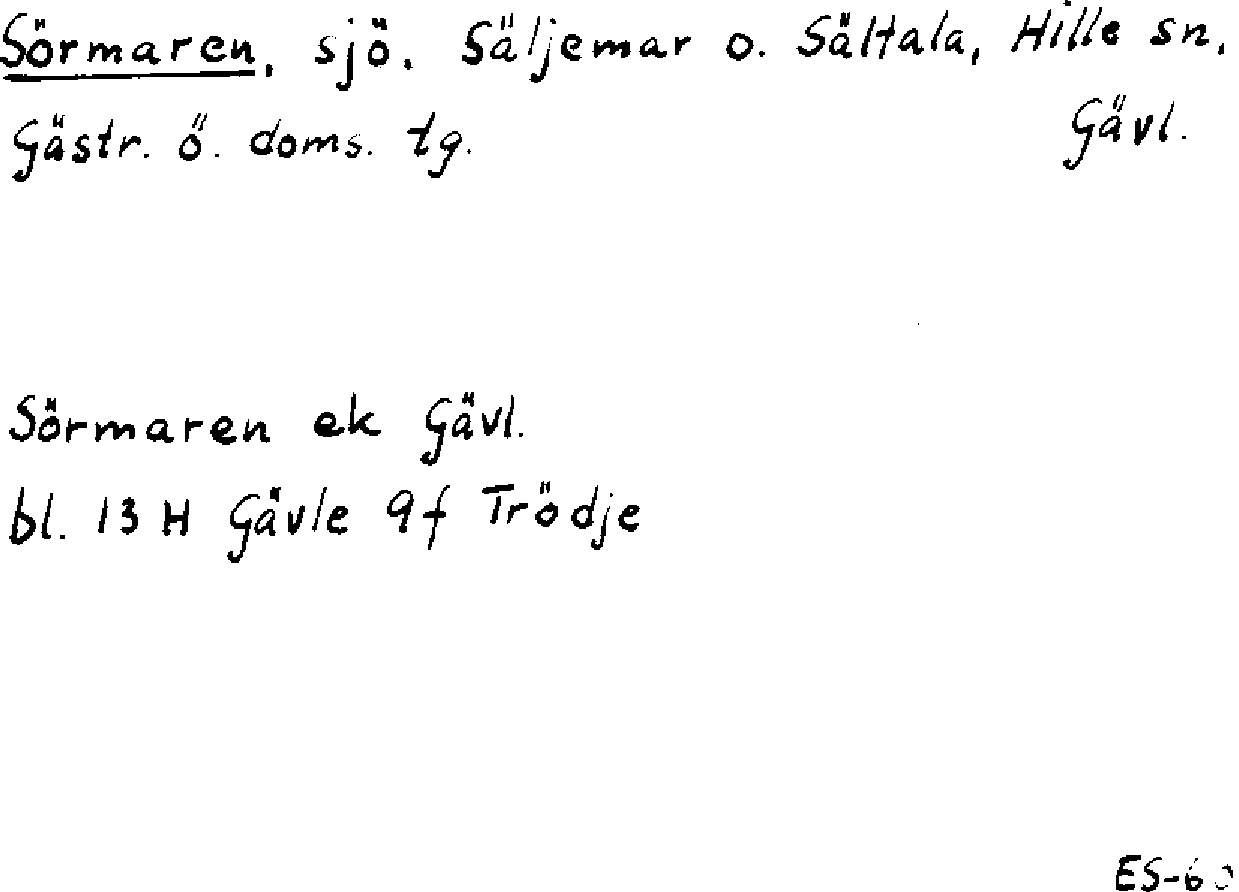 Sörmaren, sjö. Säljemar o. Sältala, Hille sn,
Gästr. ö. doms. tg. Gävl.
Sörmaren ek Gävl.
bl. 13 H Gävle 9f Trödje